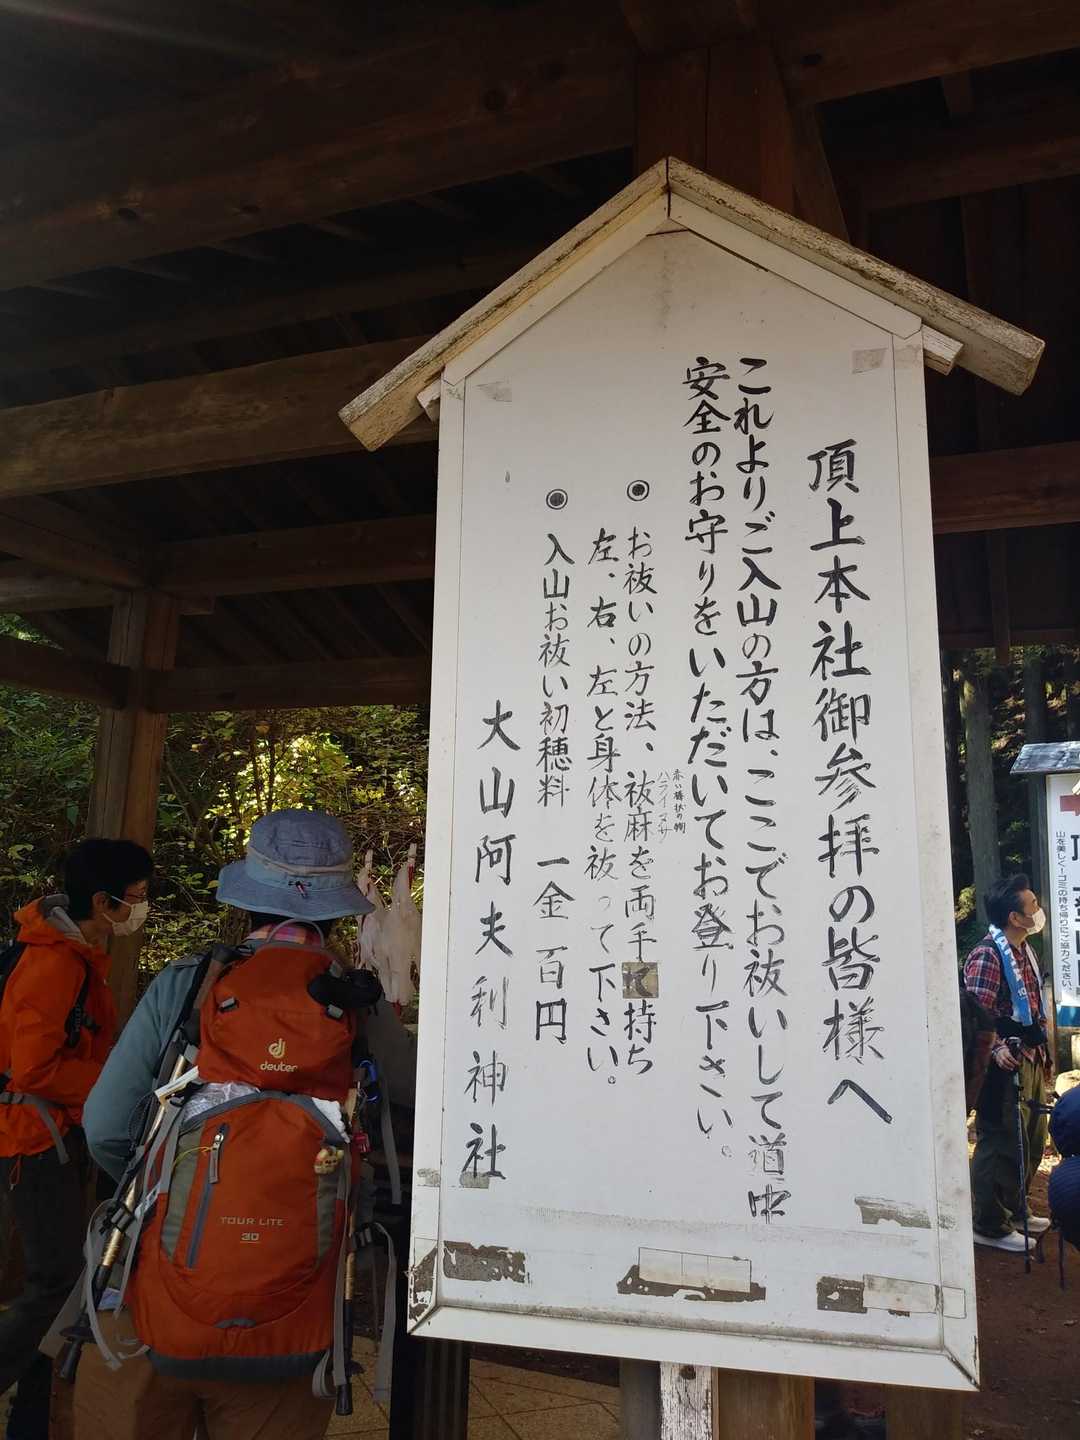 頂上本社御参拝の皆様へ
これよりご入山の方は、ここでお祓いして道中
安全のお守りをいただいてお登り下さい。
◉ お祓いの方法、祓麻を両手で持ち
赤い棒状の物
ハライヌサ
左、右、左と身体を祓って下さい。
◉ 入山お祓い初穂料 一金 百円
大山阿夫利神社
deuter
TOUR LITE
30
山を美しく!ゴミの持ち帰りにご協力ください。